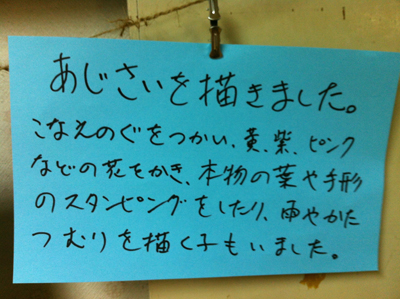 あじさいを描きました。
こなえのぐをつかい、黄、紫、ピンク
などの花をかき、本物の葉や手形
のスタンピングをしたり、雨やかた
つむりを描く子もいました。